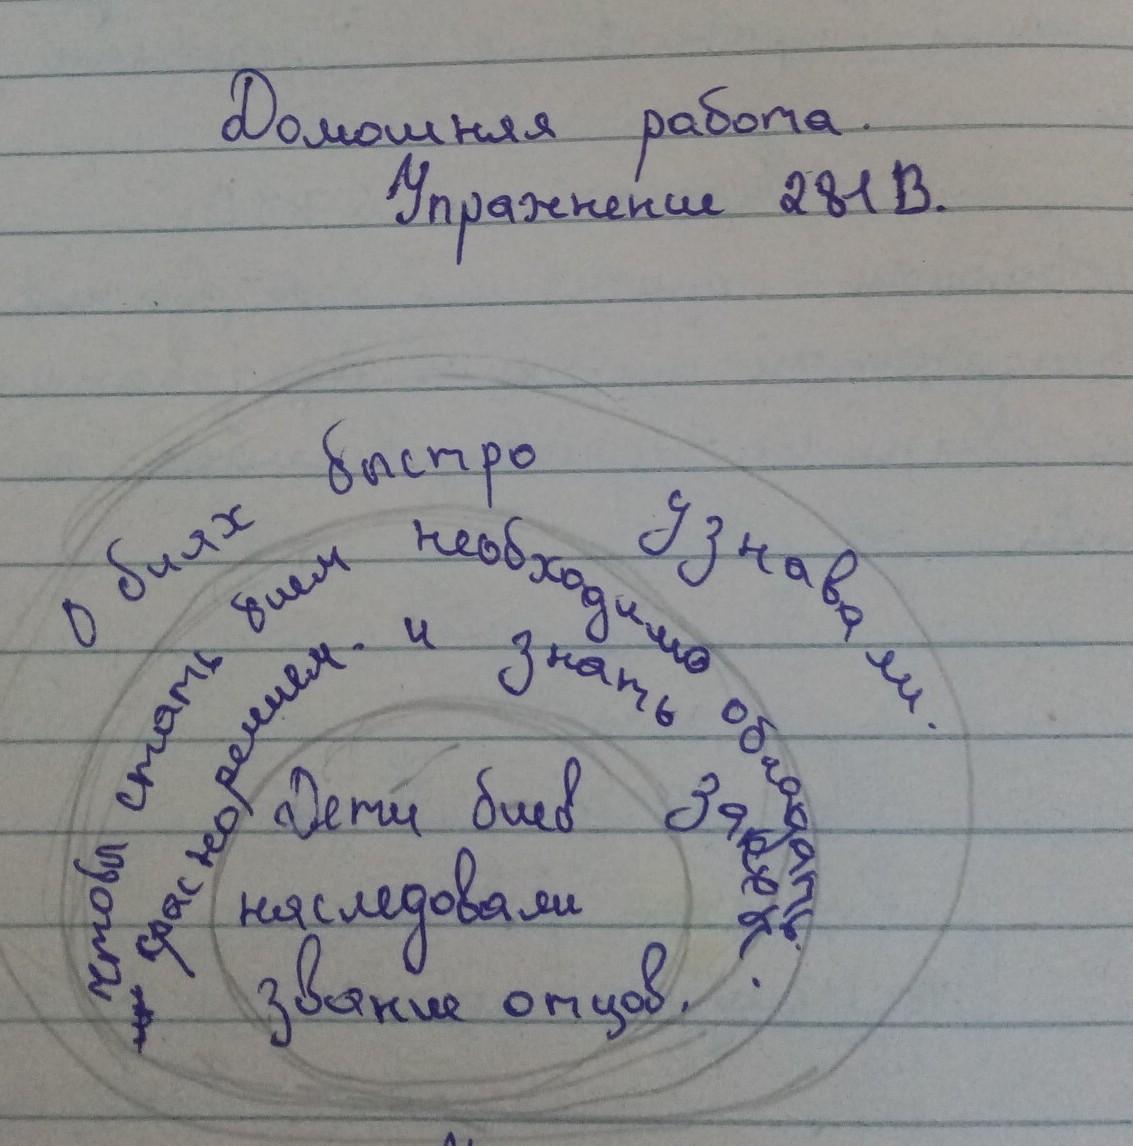 Домошняя работа.
Упражнение 281В.
О биях быстро узнавали.
чтобы стать бием необходимо обладать
красноречием. и знать законы.
Дети биев
наследовали
звание отцов.